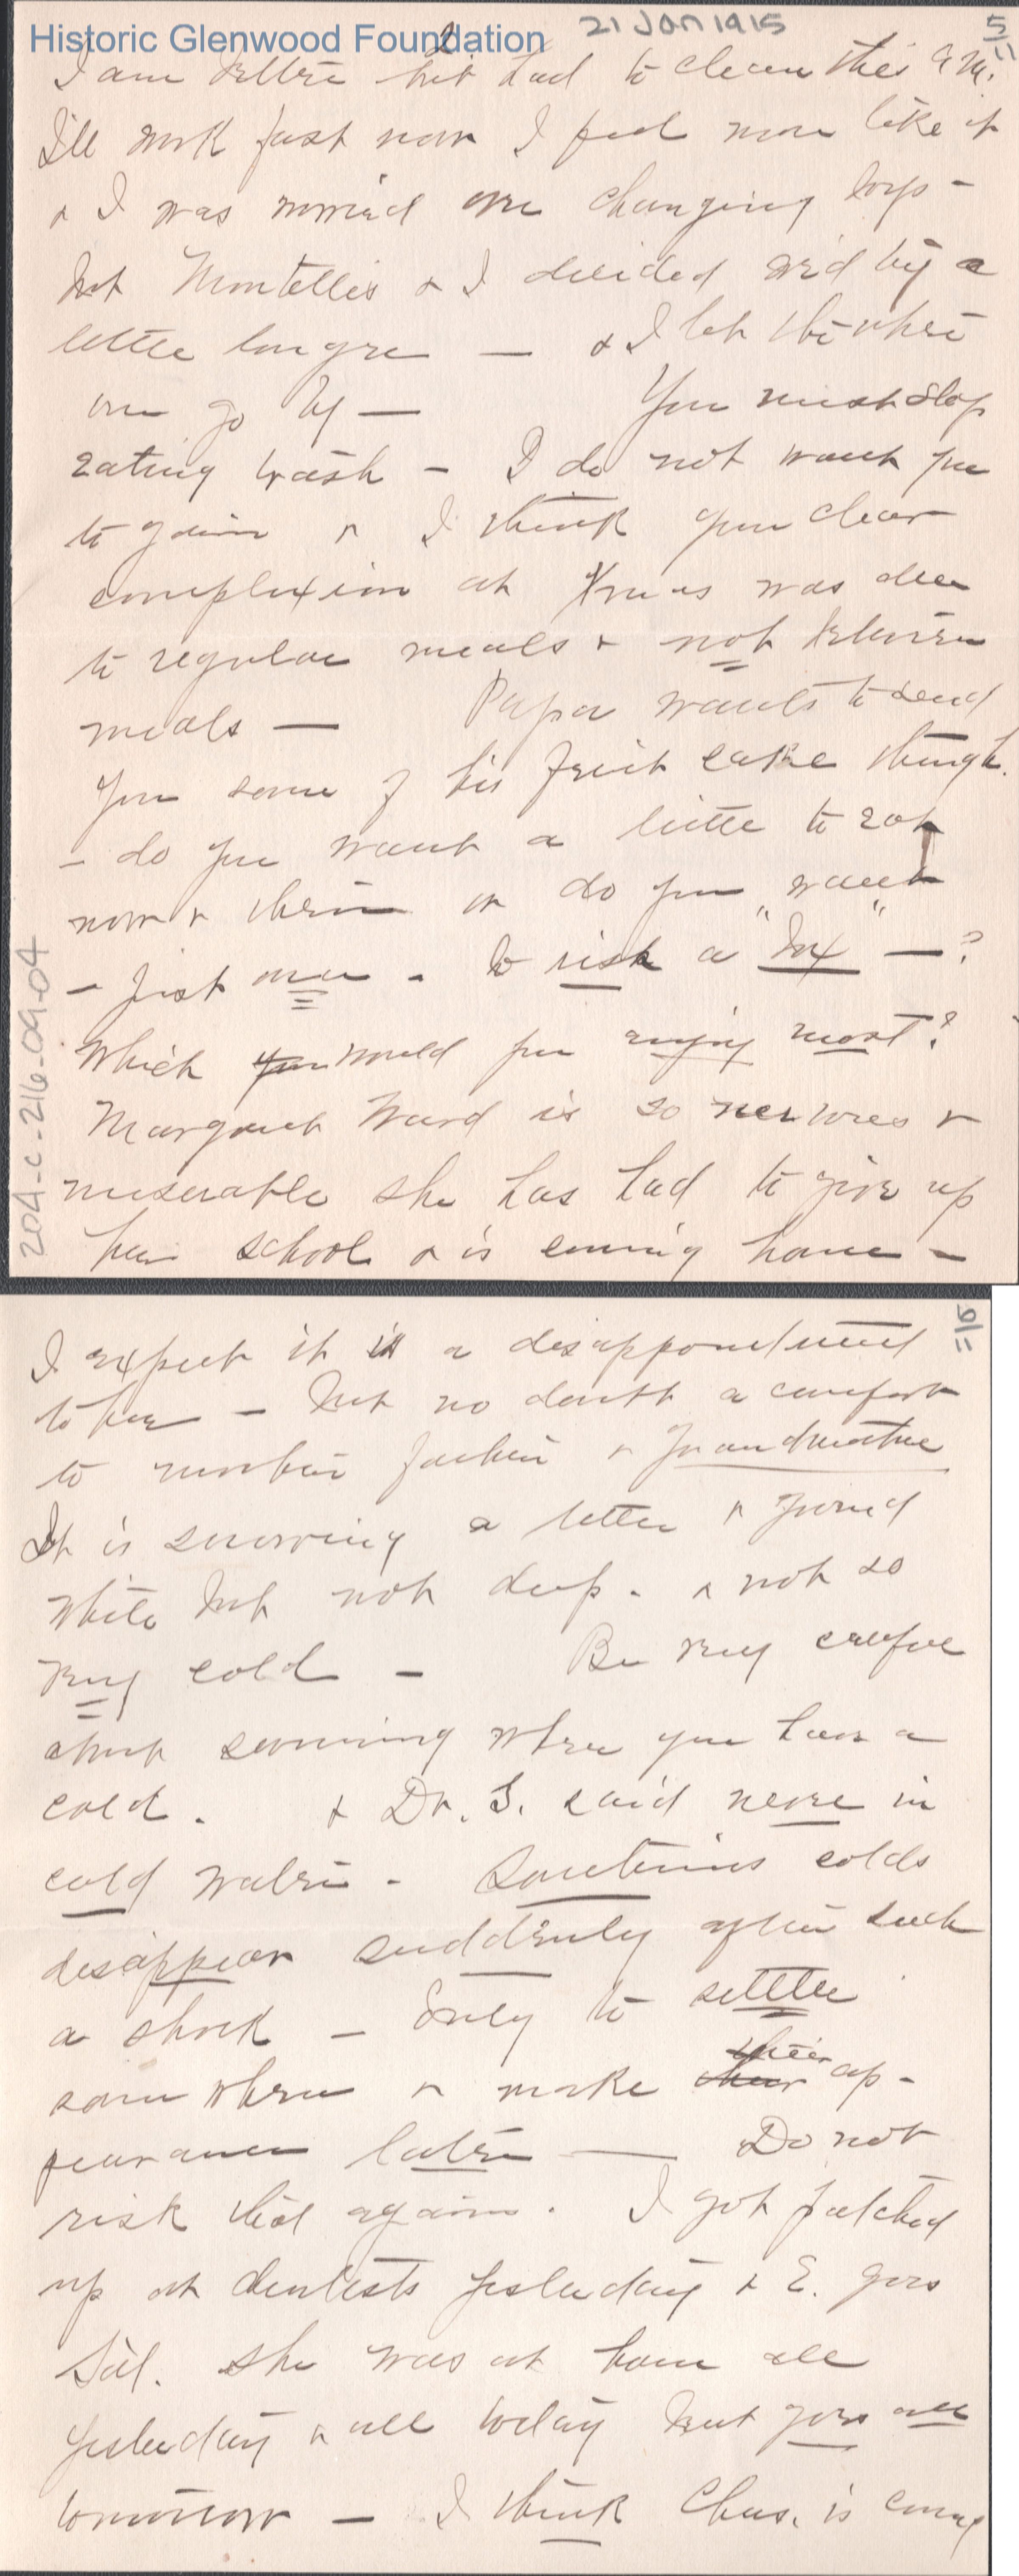 Historic Glenwood Foundation
21 Jan 1915
5/11
2
I am better but had to clean this a.m.
I'll work fast now I feel more like it
& I was worried over changing boys -
but Montellis & I decided we'd try a
little longer — & I let the other
one go by — You must stop
eating trash - I do not want you
to gain & I think your clear
complexion at Xmas was due
to regular meals & not between
meals — Papa wants to send
you some of his fruit cake though.
- do you want a little to eat
now & then or do you "want"
- just one - to risk a "box" — ?
Which you would you enjoy most?
Margaret Ward is so nervous &
miserable she has had to give up
her school & is coming home -
204-c-216-09-04
6/11
I expect it is a disappointment
to her - but no doubt a comfort
to mother father & Grandmother
It is snowing a little & ground
white but not deep - & not so
very cold - Be very careful
about swimming when you have a
cold. & Dr. S. said never in
cold water - Sometimes colds
disappear suddenly after such
a shock - only to settle
some where & make their their ap-
pearance later — Do not
risk that again. I got patched
up at dentists yesterday & E. goes
Sat. She was at home all
yesterday & all today but goes all
tomorrow - I think Chas. is coming